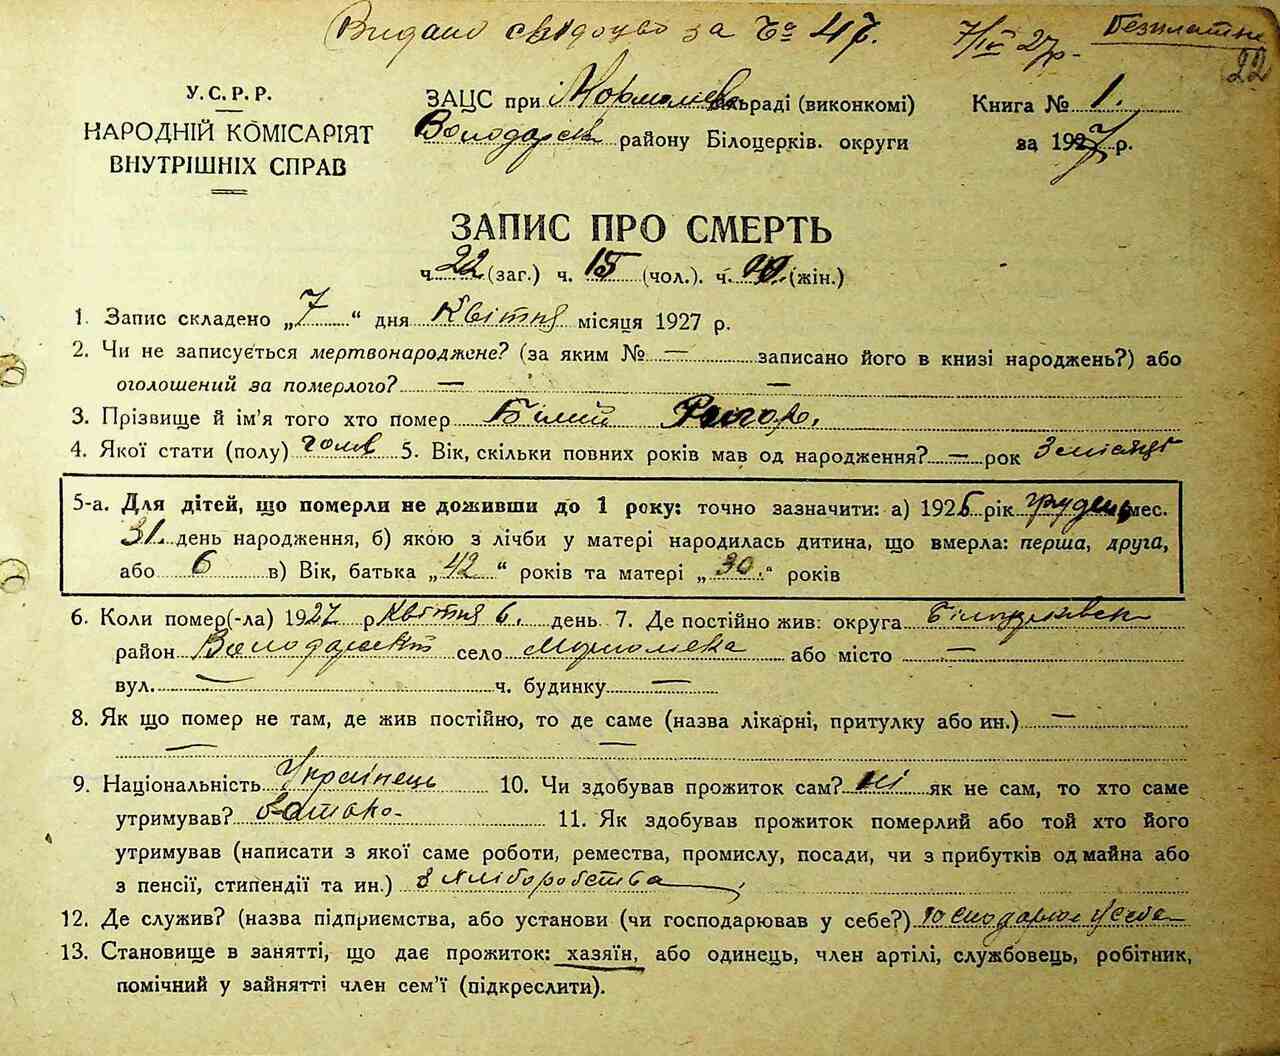 Видано свідоцво за № 47. 7/IV 27р. Безплатно
22
У.С.Р.Р.
НАРОДНІЙ КОМІСАРІЯТ
ВНУТРІШНІХ СПРАВ
ЗАЦС при раді (виконкомі)
Володарськ району Білоцерків. округи
Книга № 1.
за 1927 р.
ЗАПИС ПРО СМЕРТЬ
ч. 22 (заг.) ч. 15 (чол.). ч. (жін.)
1. Запис складено „7“ дня Квітня місяця 1927 р.
2. Чи не записується мертвонароджене? (за яким № — записано його в книзі народжень?) або
оголошений за померлого? — —
3. Прізвище й ім'я того хто помер Білий Ригор.
4. Якої стати (полу) чолов 5. Вік, скільки повних років мав од народження? — рок 3 місяці
5-а. Для дітей, що померли не доживши до 1 року: точно зазначити: а) 1926 рік грудень мес.
31. день народження, б) якою з лічби у матері народилась дитина, що вмерла: перша, друга,
або 6 в) Вік, батька „42“ років та матері „30.“ років
6. Коли помер(-ла) 1927 р Квітня 6. день 7. Де постійно жив: округа Білоцерківськ
район Володарський село або місто —
вул. — ч. будинку —
8. Як що помер не там, де жив постійно, то де саме (назва лікарні, притулку або ин.) —
— —
9. Національність Українець 10. Чи здобував прожиток сам? ні як не сам, то хто саме
утримував? батько- 11. Як здобував прожиток померлий або той хто його
утримував (написати з якої саме роботи, ремества, промислу, посади, чи з прибутків од майна або
з пенсії, стипендії та ин.) з хліборобства
12. Де служив? (назва підприємства, або установи (чи господарював у себе?) господарював у себе
13. Становище в занятті, що дає прожиток: хазяїн, або одинець, член артілі, службовець, робітник,
помічний у зайнятті член сем'ї (підкреслити).